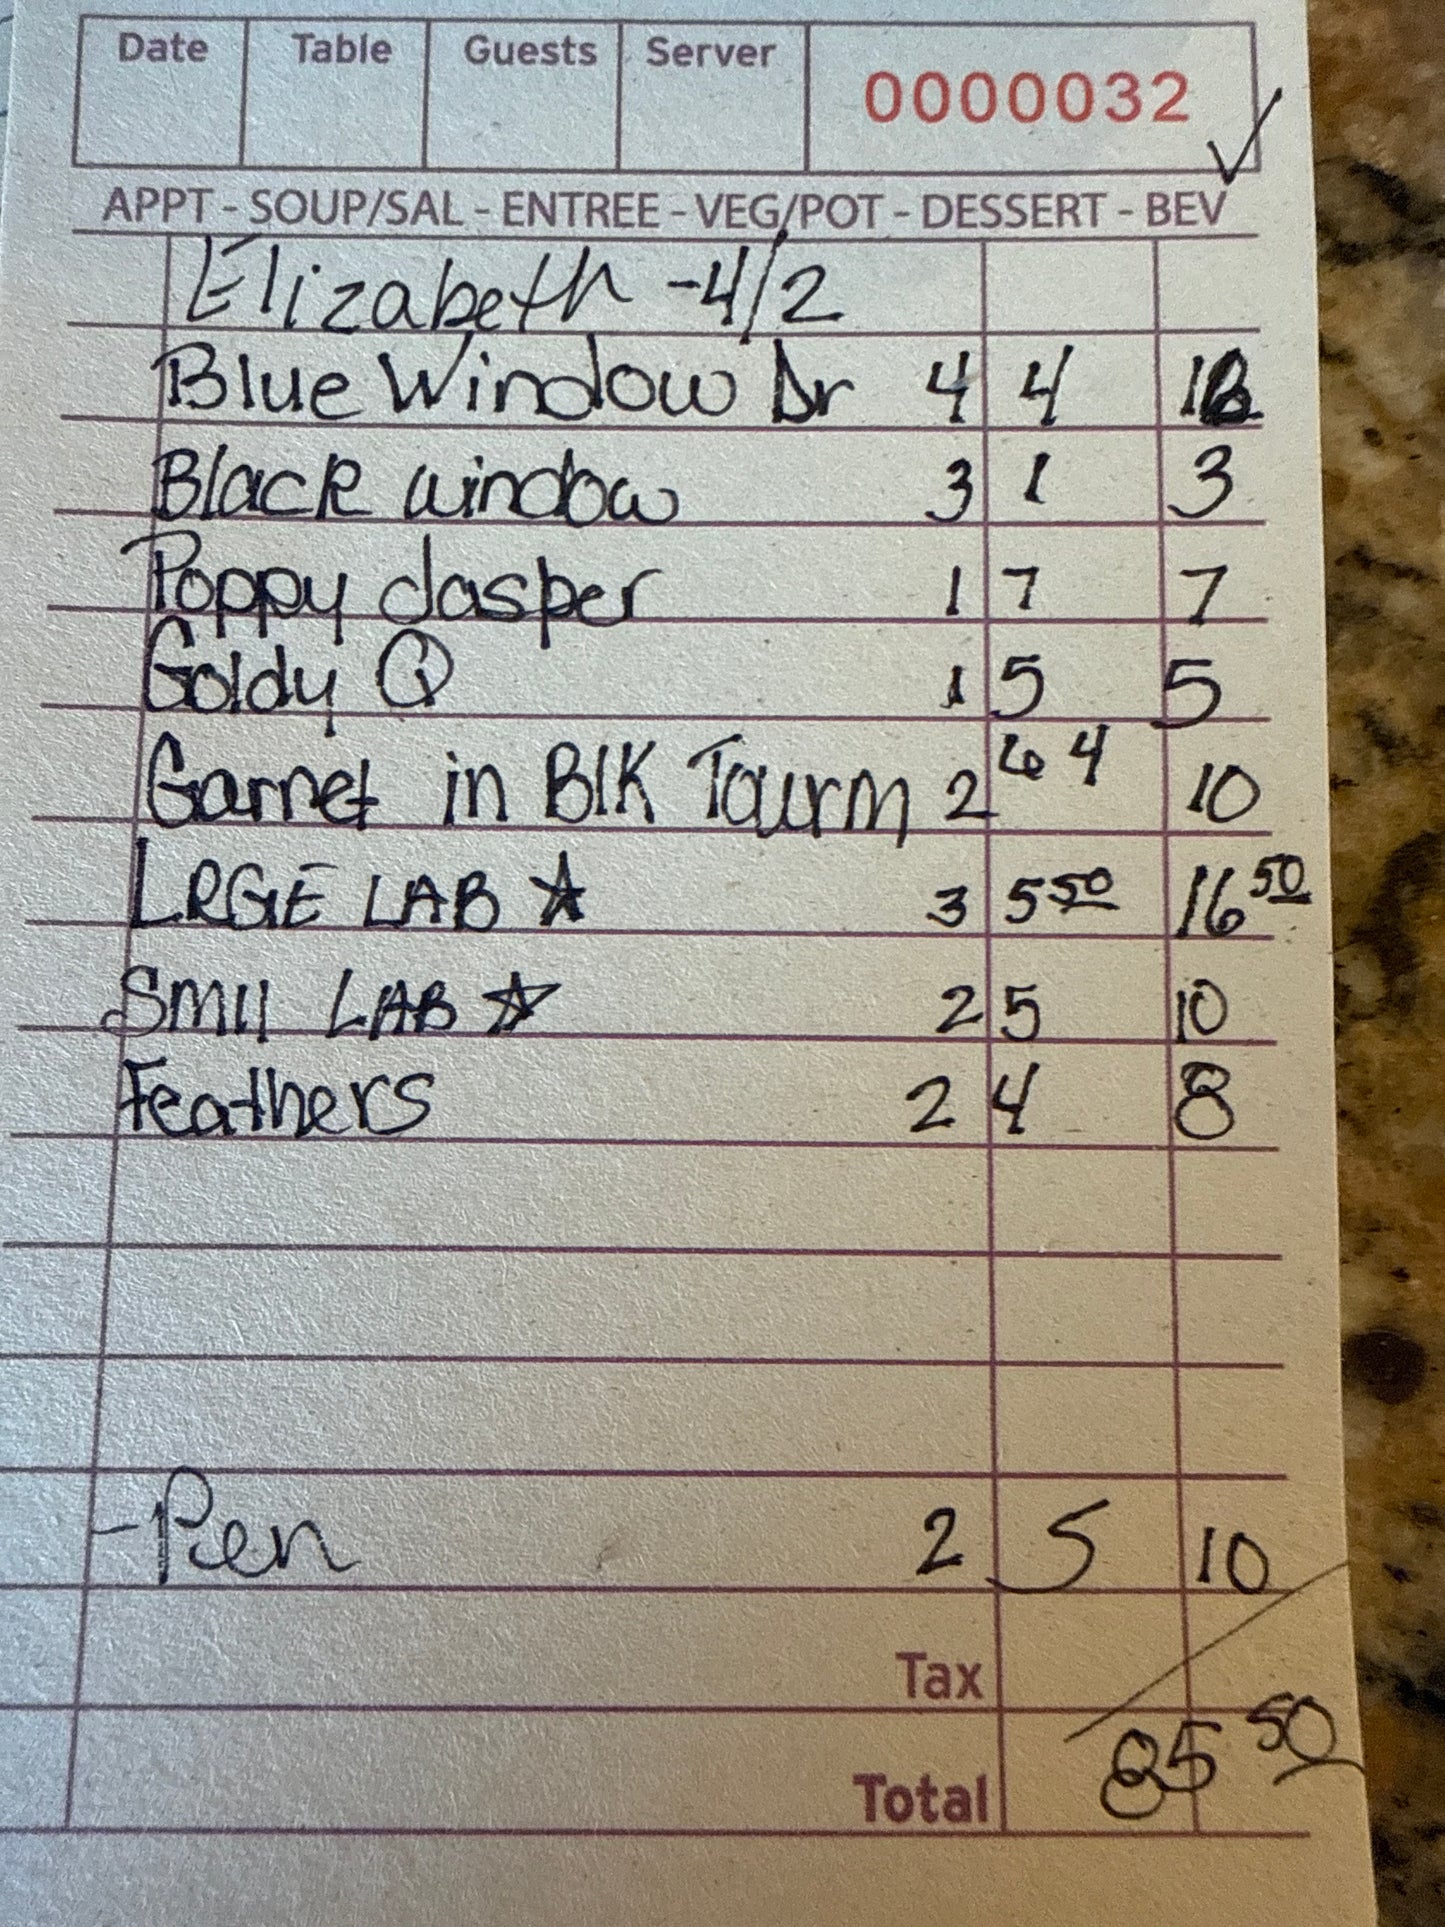 Date Table Guests Server 0000032
APPT - SOUP/SAL - ENTREE - VEG/POT - DESSERT - BEV
Elizabeth - 4/2
Blue Window Dr 4 4 16
Black window 3 1 3
Poppy Jasper 1 7 7
Goldy Q 1 5 5
Garnet in BlK Tourm 2 6 4 10
LRGE LAB ☆ 3 5 50 16 50
SMll LAB ☆ 2 5 10
Feathers 2 4 8
- Pen 2 5 10
Tax
Total 85 50